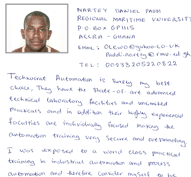 NARTEY DANIEL PADI
REGIONAL MARITIME UNIVERSITY
P.O BOX GP1115
ACCRA - GHANA
EMAIL:
TEL:
Technocrat Automation is surely my best
choice. They have the state-of-are advanced
technical laboratory facilities and unlimited
practicals and in addition their highly experienced
faculties are individually focused making the
automation training very secure and outstanding.
I was exposed to a world class practical
training in industrial automation and process
automation and therefore consider myself to be